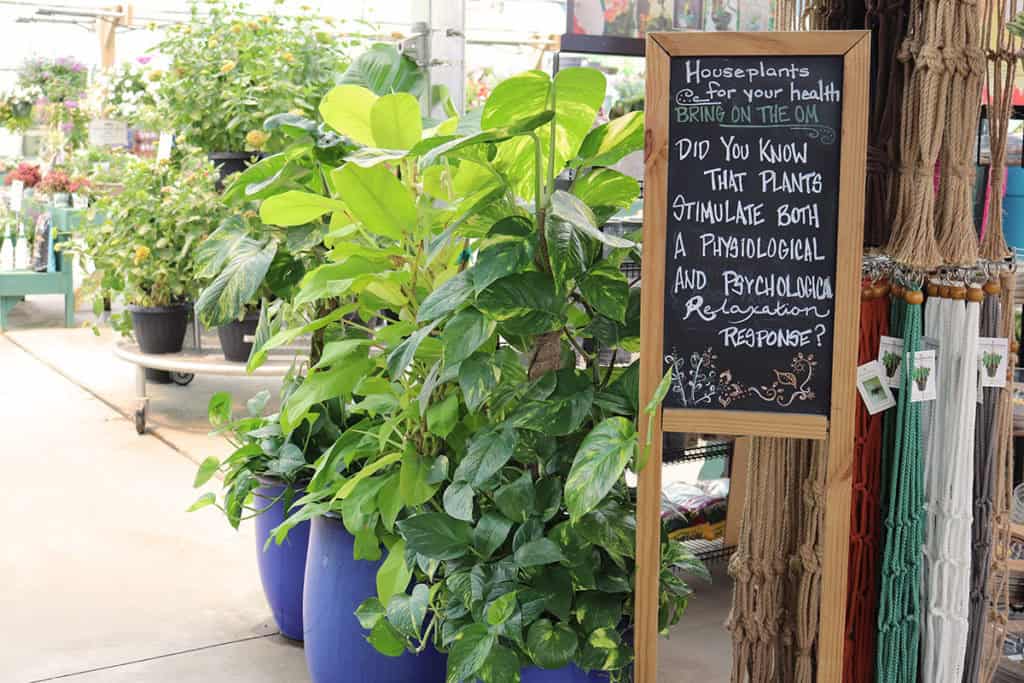 Houseplants
for your health
BRING ON THE OM
DID YOU KNOW
THAT PLANTS
STIMULATE BOTH
A PHYSIOLOGICAL
AND PSYCHOLOGICAL
Relaxation
RESPONSE?